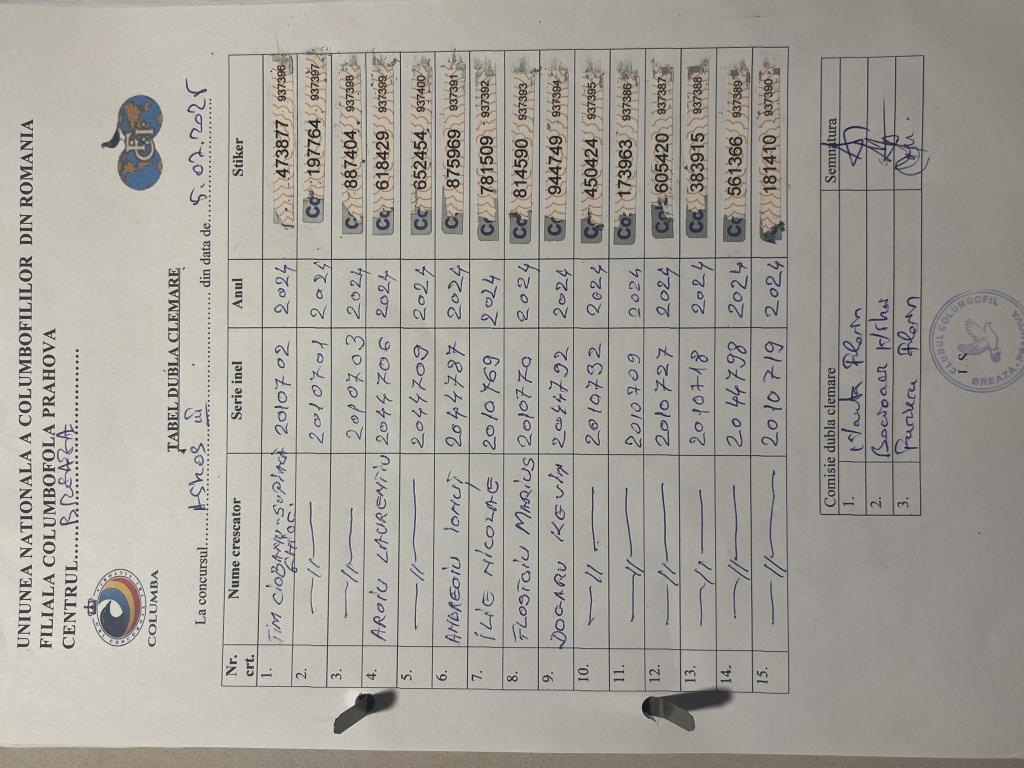 UNIUNEA NATIONALA A COLUMBOFILILOR DIN ROMANIA
FILIALA COLUMBOFOLA PRAHOVA
CENTRUL......BREAZA......
COLUMBA
FCI
TABEL DUBLA CLEMARE
La concursul............ din data de...5.07.2025
Nr. crt. Nume crescator Serie inel Anul Stiker
1. TIM CIOBANU-SUPINA 2010702 2024 473877 937396
2. —//— 2010701 2024 Co 197764 937397
3. —//— 2010703 2024 C 887404 937398
4. AROIU LAURENTIU 2044706 2024 Co 618429 937399
5. —//— 2044709 2024 Co 652454 937400
6. ANDREOIU IONUȚ 2044787 2024 C 875969 937391
7. ILIE NICOLAE 2010769 2024 Co 781509 937392
8. FLOSTOIU MARIUS 2010770 2024 Co 814590 937393
9. DOGARU KEVIN 2044792 2024 Co 944749 937394
10. —//— 2010732 2024 Co 450424 937395
11. —//— 2010709 2024 Co 173963 937386
12. —//— 2010727 2024 Co 605420 937387
13. —//— 2010718 2024 Co 383915 937388
14. —//— 2044798 2024 Co 561366 937389
15. —//— 2010719 2024 181410 937390
Comisie dubla clemare Semnatura
1. Florin
2.
3. Florin
CLUBUL COLUMBOFIL
BREAZA